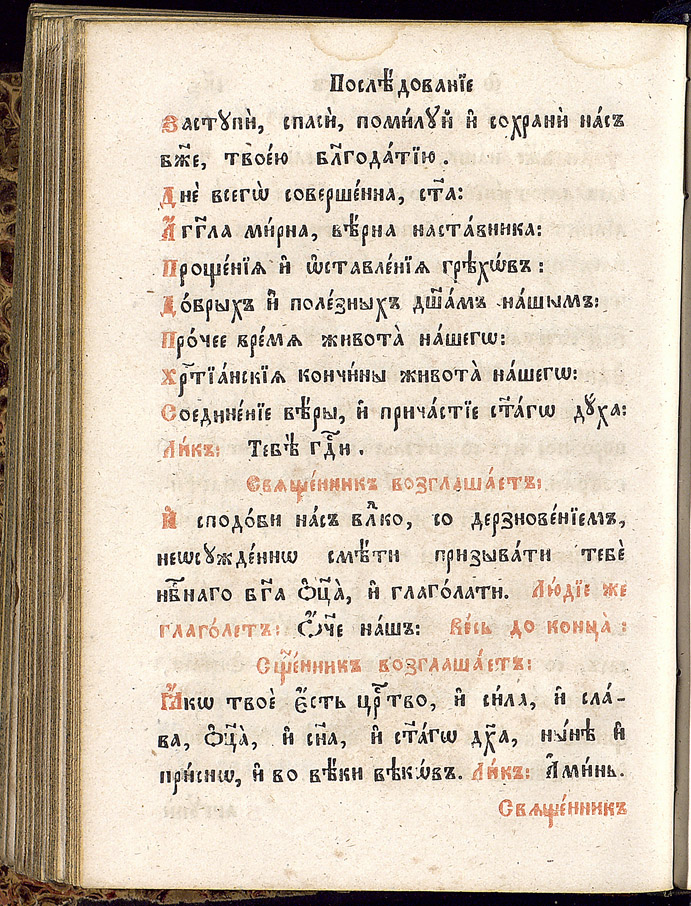 Послѣ́дованїе
Застꙋпѝ, спасѝ, поми́лꙋй и҆ сохранѝ на́съ
бж҃е, твое́ю бл҃года́тїю.
Днѐ всегѡ̀ соверше́нна, ст҃а:
А҆́гг҃ла ми́рна, вѣ́рна наста́вника:
Проще́нїѧ и҆ ѡ҆ставле́нїѧ грѣхѡ́въ:
До́брыхъ и҆ поле́зныхъ дш҃а́мъ на́шымъ:
Про́чее вре́мѧ живота̀ на́шегѡ:
Хрⷭ҇тїа́нскїѧ кончи́ны живота̀ на́шегѡ:
Соедине́нїе вѣ́ры, и҆ прича́стїе ст҃а́гѡ дꙋ́ха:
Ли́къ: Тебѣ̀ гдⷭ҇и.
Свѧще́нникъ возглаша́етъ:
И҆ сподо́би на́съ влⷣко, со дерзнове́нїемъ,
неѡсꙋжде́ннѡ смѣ́ти призыва́ти тебѐ
нбⷭ҇наго бг҃а ѻ҆ц҃а̀, и҆ глаго́лати. Лю́дїе же
глаго́летъ: Ѻ҆́ч҃е на́шъ: Ве́сь до конца̀:
Сщ҃е́нникъ возглаша́етъ:
Ꙗ҆́кѡ твоѐ є҆́сть црⷭ҇тво, и҆ си́ла, и҆ сла́-
ва, ѻ҆ц҃а̀, и҆ сн҃а, и҆ ст҃а́гѡ дх҃а, ны́нѣ и҆
при́снѡ, и҆ во вѣ́ки вѣкѡ́въ. Ли́къ: А҆ми́нь.
Свѧще́нникъ